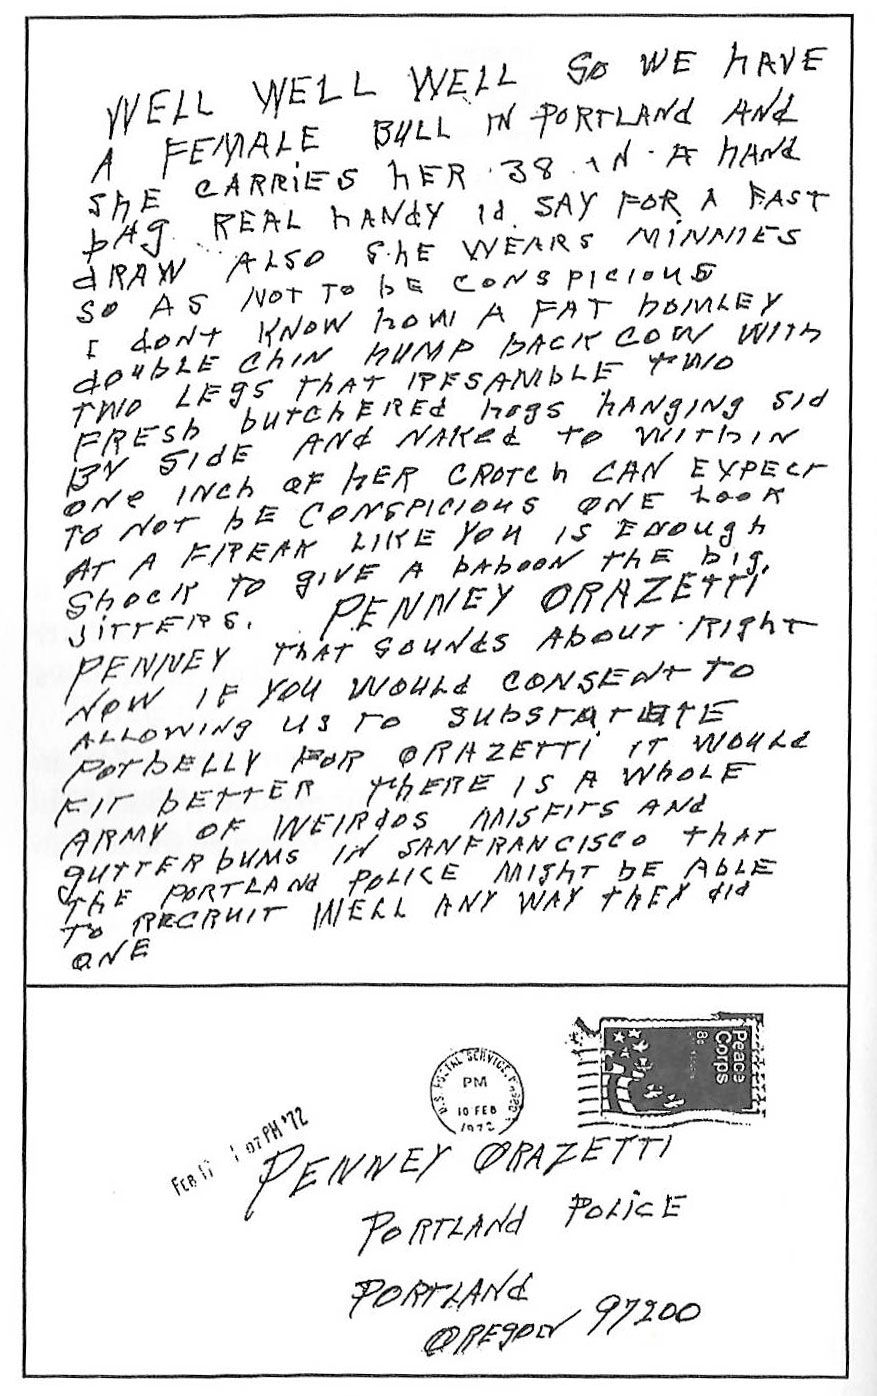 WELL WELL WELL SO WE HAVE
A FEMALE BULL IN PORTLAND AND
SHE CARRIES HER .38 IN A HAND
BAG REAL HANDY ID SAY FOR A FAST
DRAW ALSO SHE WEARS MINNIES
SO AS NOT TO BE CONSPICIOUS
I DONT KNOW HOW A FAT HOMLEY
DOUBLE CHIN HUMP BACK COW WITH
TWO LEGS THAT RESAMBLE TWO
FRESH BUTCHERED HOGS HANGING SID
BY SIDE AND NAKED TO WITHIN
ONE INCH OF HER CROTCH CAN EXPECT
TO NOT BE CONSPICIOUS ONE LOOK
AT A FREAK LIKE YOU IS ENOUGH
SHOCK TO GIVE A BABOON THE BIG
JITTERS. PENNEY ORAZETTI
PENNEY THAT SOUNDS ABOUT RIGHT
NOW IF YOU WOULD CONSENT TO
ALLOWING US TO
POTBELLY FOR ORAZETTI IT WOULD
FIT BETTER THERE IS A WHOLE
ARMY OF WEIRDOS MISFITS AND
GUTTERBUMS IN SANFRANCISCO THAT
THE PORTLAND POLICE MIGHT BE ABLE
TO RECRUIT WELL ANY WAY THEY DID
ONE
Peace
Corps
8c
U.S. POSTAL SERVICE
PM
10 FEB
1972
FEB PM '72
PENNEY ORAZETTI
PORTLAND POLICE
PORTLAND
OREGON 97200